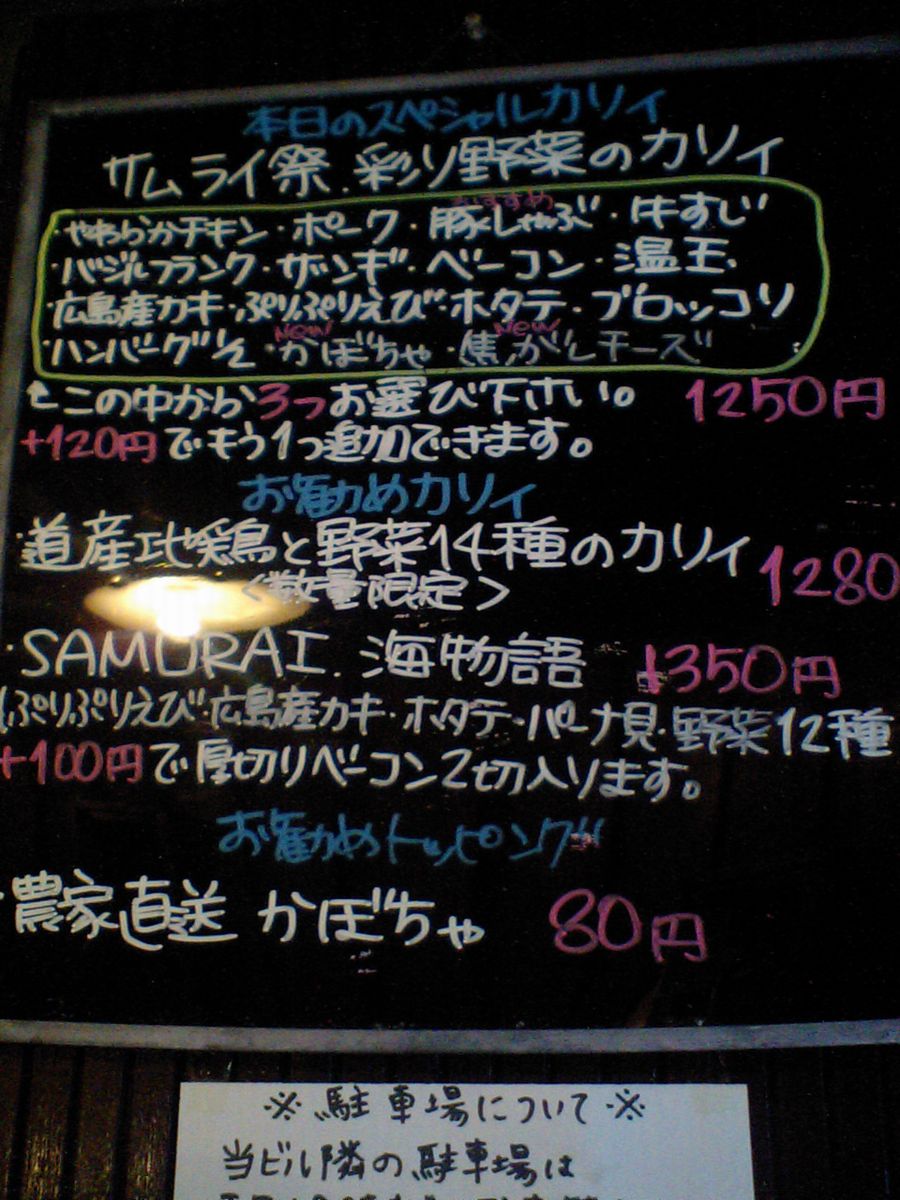 本日のスペシャルカリィ
サムライ祭.彩り野菜のカリィ
おすすめ
・やわらかチキン・ポーク・豚しゃぶ・牛すじ
・バジルフランク・ザンギ・ベーコン・温玉
・広島産カキ・ぷりぷりえび・ホタテ・ブロッコリ
New New
・ハンバーグ・かぼちゃ・焦がしチーズ
この中から3つお選び下さい。 1250円
+120円でもう1つ追加できます。
お勧めカリィ
・道産地鶏と野菜14種のカリィ 1280
<数量限定>
・SAMURAI.海物語 1350円
(ぷりぷりえび・広島産カキ・ホタテ・パーナ貝・野菜12種
+100円で厚切りベーコン2切入ります。
お勧めトッピング!!
・農家直送 かぼちゃ 80円
※駐車場について※
当ビル隣の駐車場は